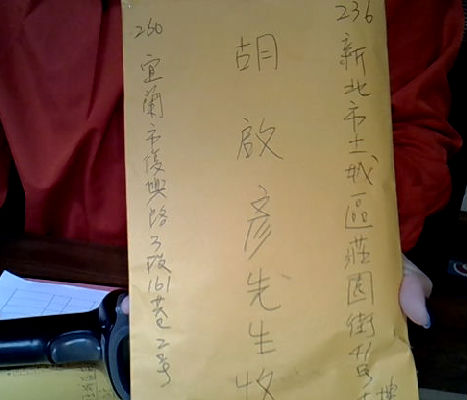 236
新北市土城區莊園街
胡啟彥先生收
260
宜蘭市復興路3段161巷2號